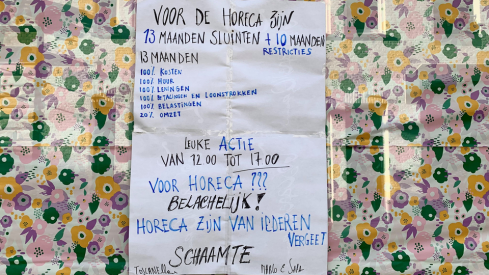 VOOR DE HORECA ZIJN
13 MAANDEN SLUINTEN + 10 MAANDEN
RESTRICTIES
13 MAANDEN
100% KOSTEN
100% HUUR
100% LENINGEN
100% BETALINGEN EN LOONSTROKKEN
100% BELASTINGEN
20% OMZET
LEUKE ACTIE
VAN 12.00 TOT 17.00
VOOR HORECA ???
BELACHELIJK!
HORECA ZIJN VAN IEDEREN
VERGEET
SCHAAMTE